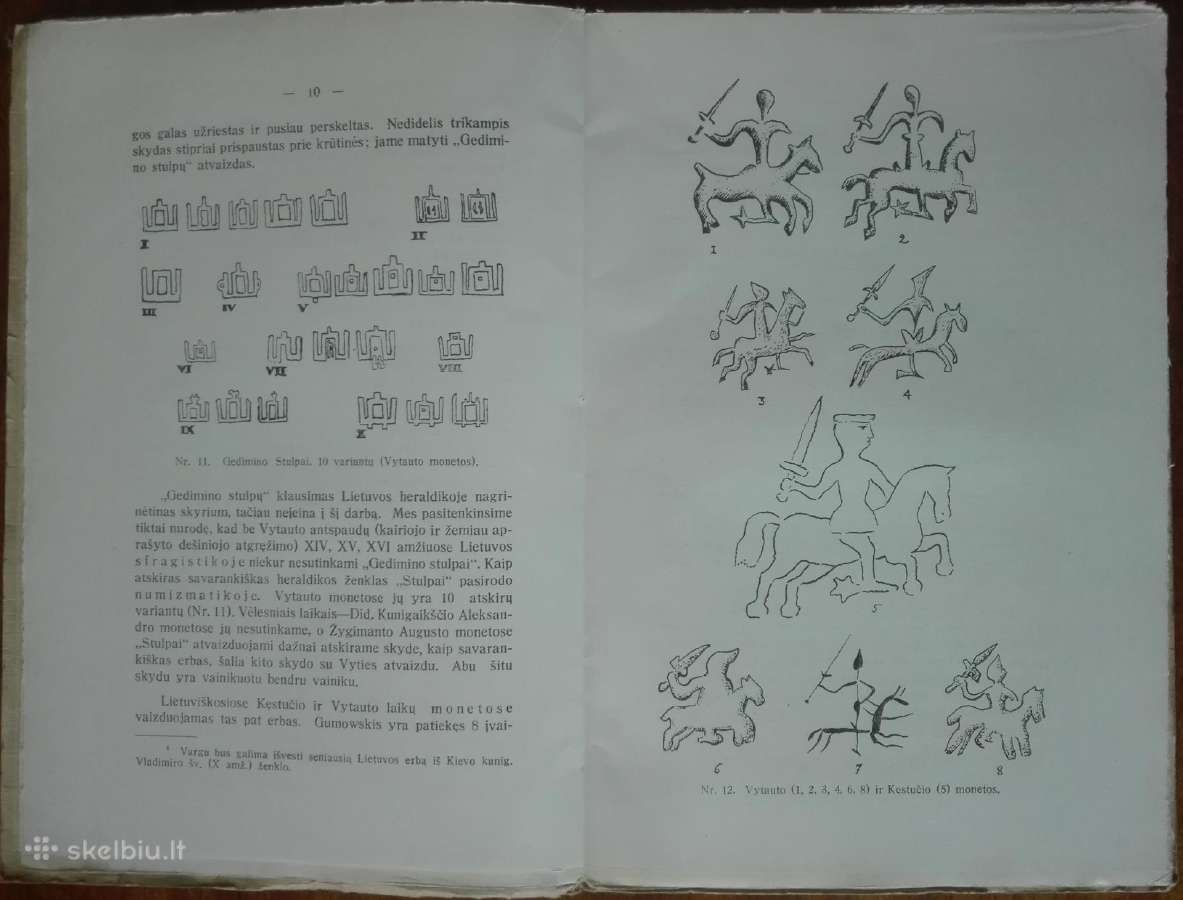 — 10 —
gos galas užriestas ir pusiau perskeltas. Nedidelis trikampis
skydas stipriai prispaustas prie krūtinės; jame matyti „Gedimi-
no stulpų“ atvaizdas.
I
II
III
IV
V
VI
VII
VIII
IX
X
Nr. 11. Gedimino Stulpai. 10 variantų (Vytauto monetos).
„Gedimino stulpų“ klausimas Lietuvos heraldikoje nagri-
nėtinas skyrium, tačiau neįeina į šį darbą. Mes pasitenkinsime
tiktai nurodę, kad be Vytauto antspaudų (kairiojo ir žemiau ap-
rašyto dešiniojo atgręžimo) XIV, XV, XVI amžiuose Lietuvos
sfragistikoje niekur nesutinkami „Gedimino stulpai“. Kaip
atskiras savarankiškas heraldikos ženklas „Stulpai“ pasirodo
numizmatikoje. Vytauto monetose jų yra 10 atskirų
variantų (Nr. 11). Vėlesniais laikais—Did. Kunigaikščio Aleksan-
dro monetose jų nesutinkame, o Žygimanto Augusto monetose
„Stulpai“ atvaizduojami dažnai atskirame skyde, kaip savaran-
kiškas erbas, šalia kito skydo su Vyties atvaizdu. Abu šitu
skydu yra vainikuotu bendru vainiku.
Lietuviškosiose Kęstučio ir Vytauto laikų monetose
vaizduojamas tas pat erbas. Gumowskis yra patiekęs 8 įvai-
¹ Vargu bus galima išvesti seniausią Lietuvos erbą iš Kievo kunig.
Vladimiro šv. (X amž.) ženklo.
1
2
3
4
5
6
7
8
Nr. 12. Vytauto (1, 2, 3, 4, 6, 8) ir Kęstučio (5) monetos.
skelbiu.lt